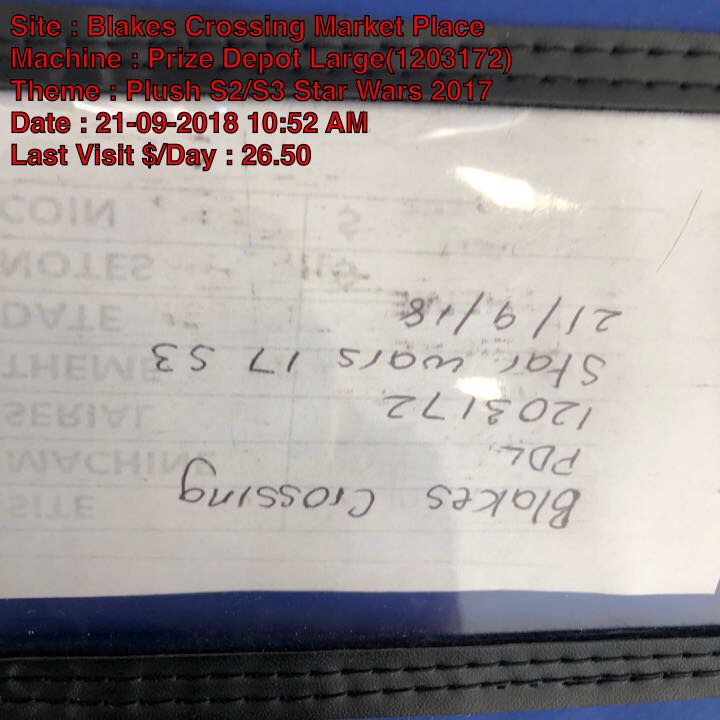 Site : Blakes Crossing Market Place
Machine : Prize Depot Large(1203172)
Theme : Plush S2/S3 Star Wars 2017
Date : 21-09-2018 10:52 AM
Last Visit $/Day : 26.50
Blakes Crossing
PDL
1203172
Star wars 17 S3
21/9/18
SITE
MACHINE
SERIAL
THEME
DATE
NOTES $
COIN $